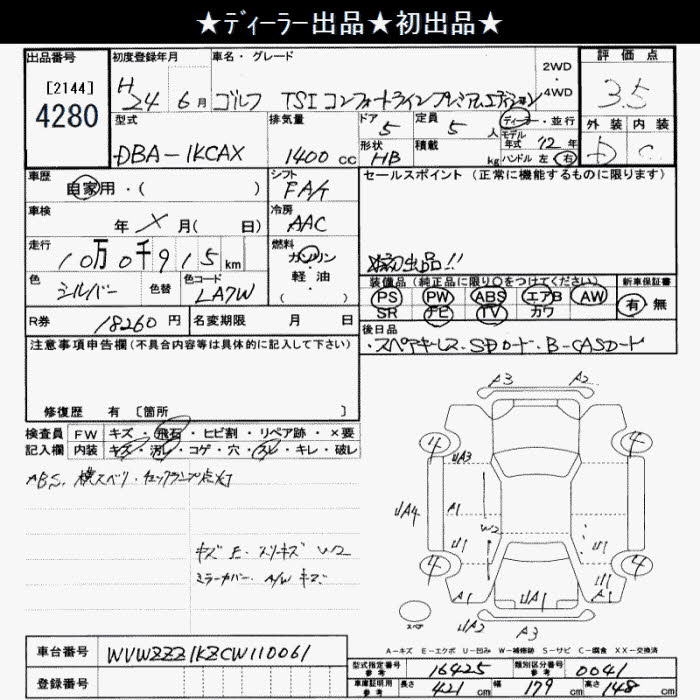 ★ディーラー出品★初出品★
出品番号
[2144]
4280
初度登録年月
H 24 6月
車名・グレード
ゴルフ TSIコンフォートラインプレミアムエディション
2WD・4WD
評価点
3.5
型式
DBA-1KCAX
排気量
1400 cc
ドア 5
定員 5 人
ディーラー・並行
モデル年式 12年
形状 HB
積載 kg
ハンドル 左 右
外装 D
内装 C
車歴
自家用・( )
シフト FA/T
セールスポイント (正常に機能するものに限ります)
車検
年 × 月( 日)
冷房 AAC
走行
10万0千915km
燃料
ガソリン
軽・油
( )
初出品!!
色 シルバー
色替
色コード LA7W
装備品(純正品に限り○をつけてください)
PS PW ABS エアB AW
SR ナビ TV カワ
新車保証書
有・無
R券 18260円
名変期限 月 日
後日品
・スペアキーレス・SDロード・B-CASロード
注意事項申告欄(不具合内容等は具体的に記入して下さい)
修復歴 有 [箇所 ]
検査員 FW キズ・飛石・ヒビ割・リペア跡・×要
記入欄 内装 キズ・汚レ・コゲ・穴・スレ・キレ・破レ
ABS、横スベリ・チェックランプ点灯
キズ E. スリキズ W2
ミラーカバー. A/W キズ
A3 A2
4 4
UA3
UA4
A1
W2
U1 U1
4 4
U1
A1 UA1 A1
スペア
UA2 A3
A-キズ E-エクボ U-凹み W-補修跡 S-サビ C-腐食 XX-交換済
車台番号 WVWZZZ1KZCW110061
登録番号
型式指定番号 参考 16425
類別区分番号 参考 0041
車庫証明用 参考 長さ 421cm 幅 179cm 高さ 148cm